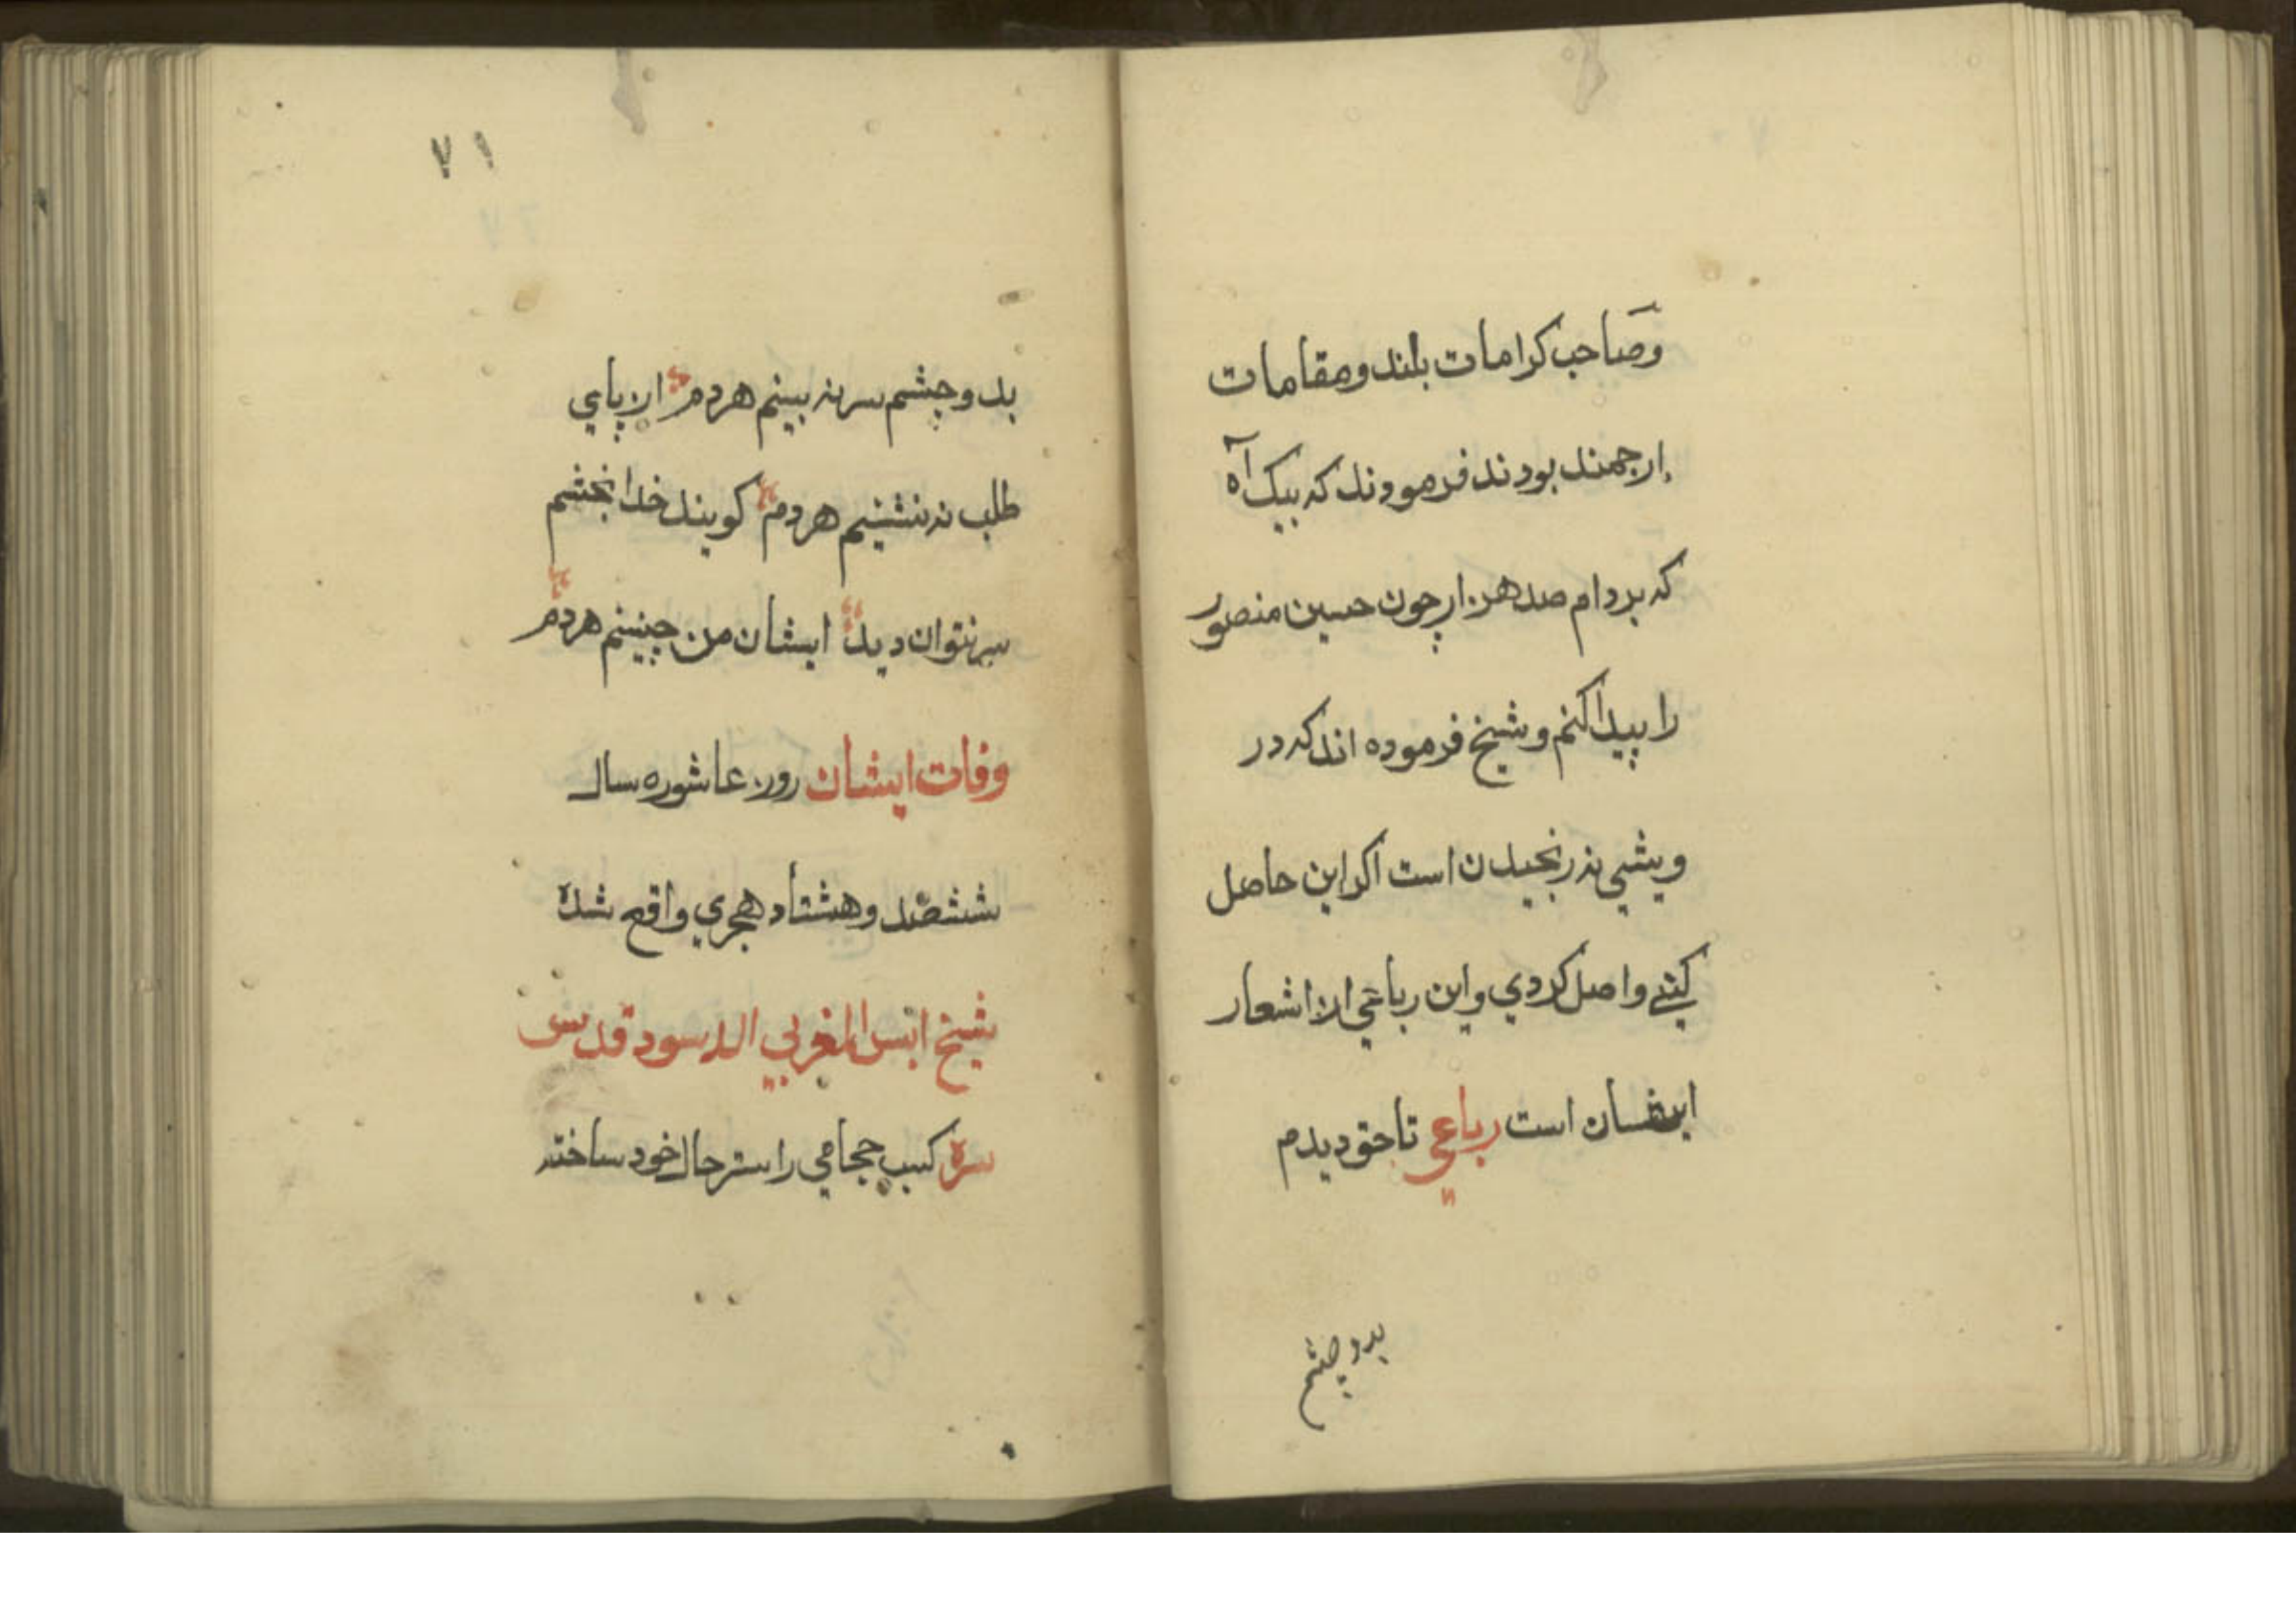 وصاحب کرامات بلند ومقامات
ارجمند بودند فرمودند که بیک آه
که بردام صد هزار چون حسین منصور
را پیدا کنم و شیخ فرموده اند که در
ویشی نه رنجیدن است اکر این حاصل
کنے واصل کردي واین رباعي از اشعار
ایشان است رباعي تا حق دیدم
بدو چشم
۷۱
بدو چشم سر نه بینم هردم از پاي
طلب نه ننشینم هردم کویند خدا بچشم
سر نتوان دید ایشان من چنینم هردم
وفات ایشان روز عاشوره سال
ششصد وهشتاد هجري واقع شده
شیخ انس المغربي الدسود قدس
سره کسب حجامي را ستر حال خود ساخته